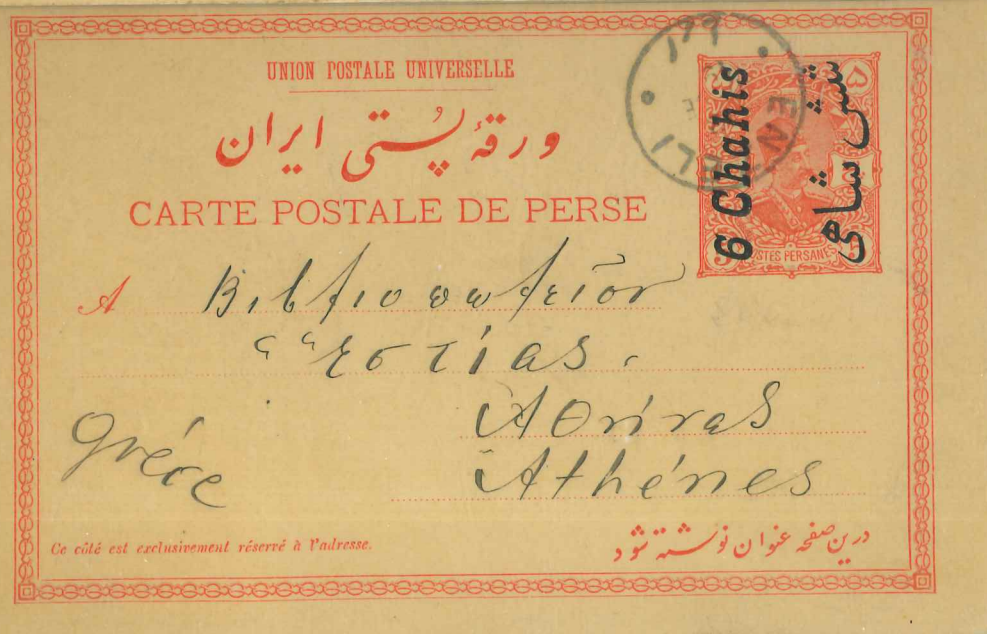 UNION POSTALE UNIVERSELLE
ورقهٔ پُستی ایران
CARTE POSTALE DE PERSE
6 Chahis
شش شاهی
۵
5
POSTES PERSANES
ENZELI
A Βιβλιοπωλεῖον
“Ἑστίας.
Ἀθήνας
Athénes
Gréce
Ce côté est exclusivement réservé à l'adresse.
درین صفحه عنوان نوشته شود